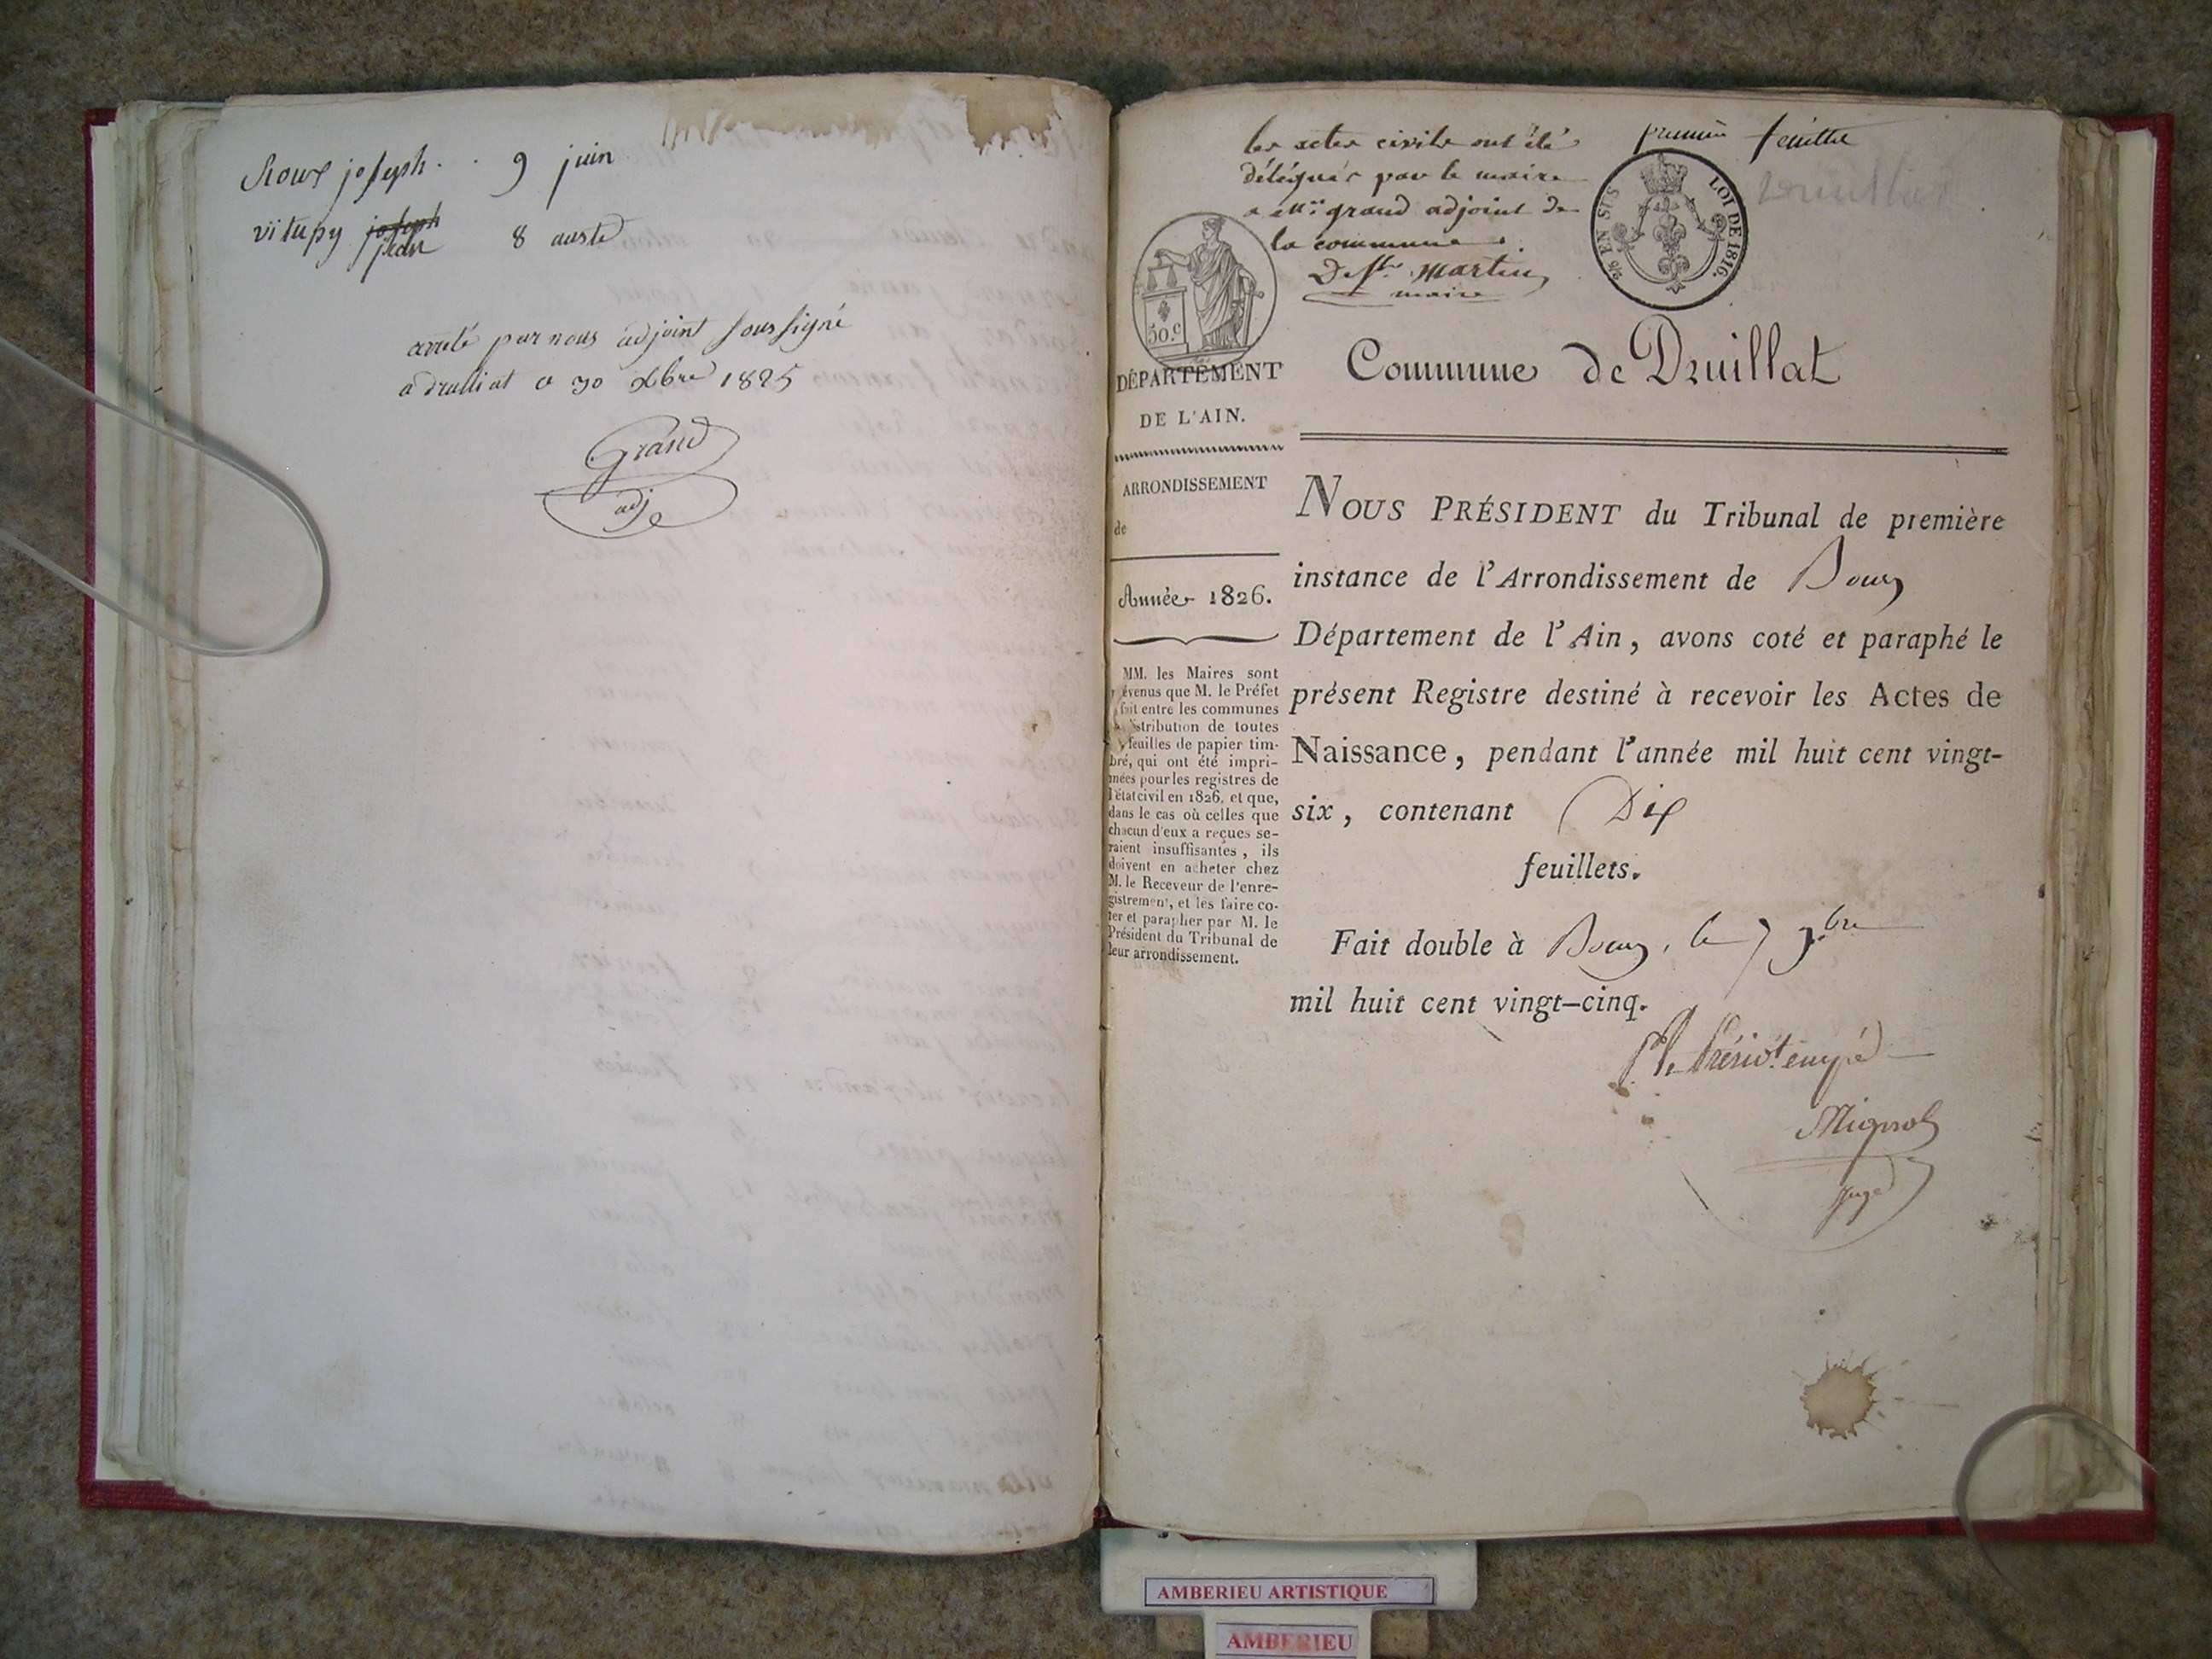 Roux joseph . . 9 juin
vitupy joseph jean 8 auste
arreté par nous adjoint soussigné
a druilliat ce 30 xbre 1825
Grand
adj
les actes civils ont été
délégués par le maire
a Mr. grand adjoint de
la commune.
D. St. Martin
maire
premier feuillet
5/6 EN SUS
LOI DE 1816.
50.c
DÉPARTEMENT
DE L'AIN.
ARRONDISSEMENT
de
Année 1826.
MM. les Maires sont
prévenus que M. le Préfet
fait entre les communes
distribution de toutes
feuilles de papier tim-
bré, qui ont été impri-
mées pour les registres de
l'état civil en 1826, et que,
dans le cas où celles que
chacun d'eux a reçues se-
raient insuffisantes, ils
doivent en acheter chez
M. le Receveur de l'enre-
gistrement, et les faire co-
ter et parapher par M. le
Président du Tribunal de
leur arrondissement.
Commune de Druillat
NOUS PRÉSIDENT du Tribunal de première
instance de l'Arrondissement de Bourg
Département de l'Ain, avons coté et paraphé le
présent Registre destiné à recevoir les Actes de
Naissance, pendant l'année mil huit cent vingt-
six, contenant Dix
feuillets.
Fait double à Bourg, le 7 9.bre
mil huit cent vingt-cinq.
Pr. le Présid.t empé
Mignot
Juge
AMBERIEU ARTISTIQUE
AMBERIEU